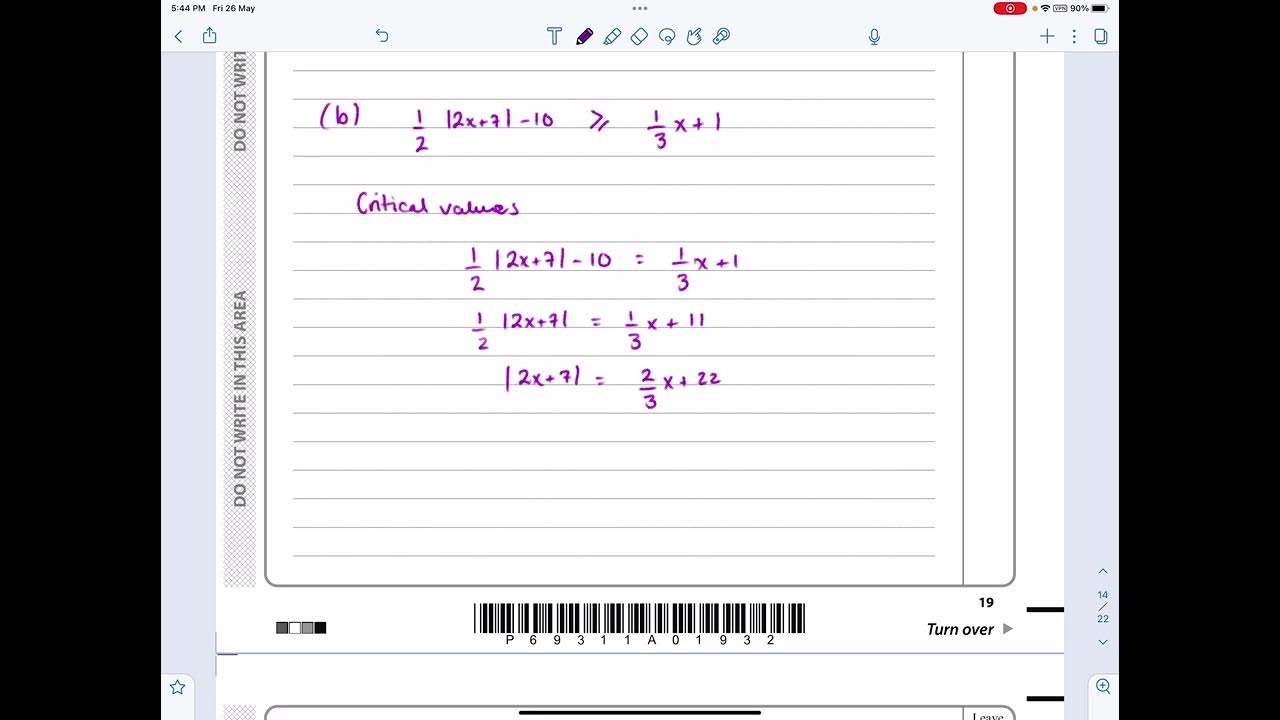 5:44 PM Fri 26 May
VPN 90%
DO NOT WRIT
(b) 1/2 |2x+7| - 10 ≥ 1/3 x + 1
Critical values
1/2 |2x+7| - 10 = 1/3 x + 1
1/2 |2x+7| = 1/3 x + 11
|2x+7| = 2/3 x + 22
DO NOT WRITE IN THIS AREA
14
/
22
19
P69311A01932
Turn over
Leave